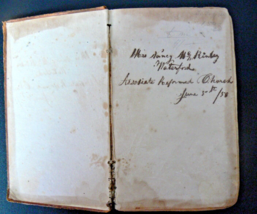 Miss Nancy Mc Kinley
Waterford
Associate Reformed Church
June 5th /58